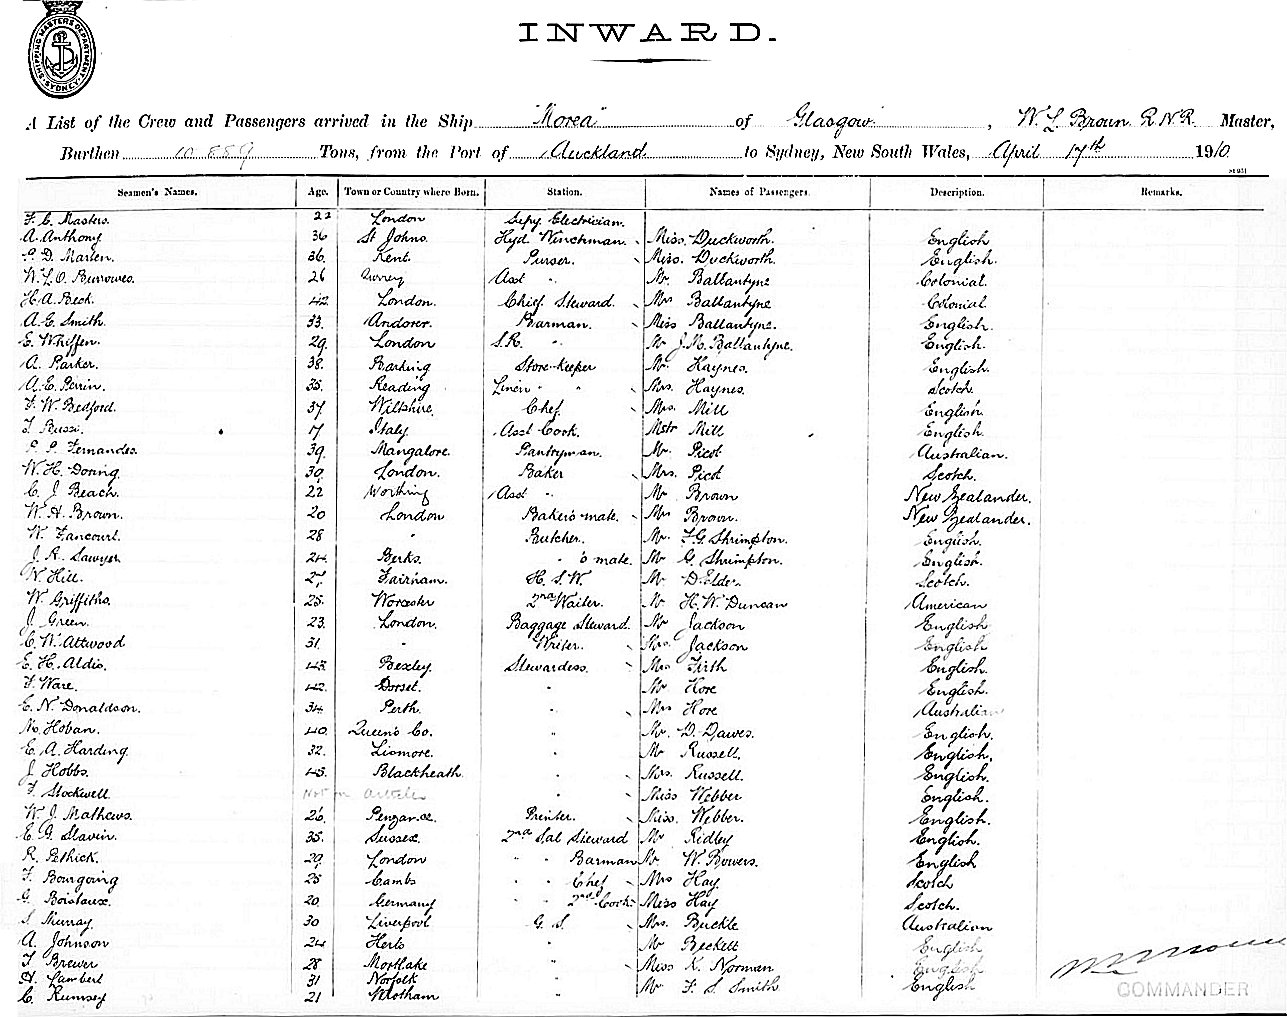 SHIPPING MASTERS DEPARTMENT SYDNEY
INWARD.
A List of the Crew and Passengers arrived in the Ship "Morea" of Glasgow, W. L. Broun R.N.R. Master,
Burthen 10889 Tons, from the Port of Auckland to Sydney, New South Wales, April 17th 1910
Seamen's Names. Age. Town or Country where Born. Station. Names of Passengers. Description. Remarks.
F. C. Masters. 22 London Supy Electrician.
A. Anthony 36 St Johns. Hyd Winchman. Miss. Duckworth. English
P. D. Marten. 36. Kent. Purser. Miss. Duckworth. English.
W. L. O. Burrowes. 26 Surrey Asst " Mr Ballantyne Colonial.
H. A. Beck. 42. London. Chief Steward. Mrs Ballantyne Colonial.
A. E. Smith. 33. Andover. Barman. Miss Ballantyne. English.
E. Whiffen. 29. London S.R. " Mr J. M. Ballantyne. English.
A. Parker. 38. Barking Store-keeper Mr. Haynes. English.
A. E. Perrin. 35. Reading Linen " " Mrs. Haynes. Scotch.
F. W. Bedford. 37 Wiltshire. Chef. Mrs. Mill English.
F. Bussi. 17 Italy. Asst Cook. Mstr Mill English.
P. P. Fernandes. 39. Mangalore. Pantryman. Mr. Picot Australian.
W. H. Doring. 30. London. Baker Mrs. Picot Scotch.
C. J. Beach. 22 Worthing Asst " Mr Brown New Zealander.
W. H. Brown. 20 London Baker's mate. Mrs Brown. New Zealander.
W. Fancourt. 28 " Butcher. Mr. F. G. Shrimpton. English.
J. R. Sawyer 24. Berks. " s mate. Mr G. Shrimpton. English.
W. Hill. 27. Fairham. H. S. W. Mr D. Elder. Scotch.
W. Griffiths. 25. Worcester 2nd Waiter. Mr H. W. Duncan American
J. Green. 23. London. Baggage Steward. Mr Jackson English
C. W. Attwood 31. " Writer. Mrs. Jackson English
E. H. Aldis. 43. Bexley. Stewardess. Mrs Firth English.
F. Ware. 42. Dorset. " Mr Hore English.
C. N. Donaldson. 34. Perth. " Mrs Hore Australian
M. Hoban. 40. Queen's Co. " Mr. D. Dawes. English.
E. A. Harding. 32. Lismore. " Mr Russell. English.
J. Hobbs. 43. Blackheath. " Mrs. Russell. English.
F. Stockwell. Not on Articles " Miss Webber English.
W. J. Mathews. 26. Penzance. Printer. Miss. Webber. English.
E. G. Slavin. 35. Sussex. 2nd Sal Steward Mr Ridley English.
R. Pethick. 29. London " " Barman Mr W. Bowers. English
F. Bourgoing 25 Cambs " " Chef Mrs Hay Scotch
G. Boistaux. 20. Germany " " 2nd Cook. Miss Hay Scotch.
S. Murray. 30 Liverpool G. S. Mrs. Buckle Australian
A. Johnson 24 Herts " Mr Beckett English
F. Brewer 28 Mortlake " Miss K. Norman English
H. Lambert 31 Norfolk " Mr F. S. Smith English
C. Rumsey 21 Wrotham "
COMMANDER